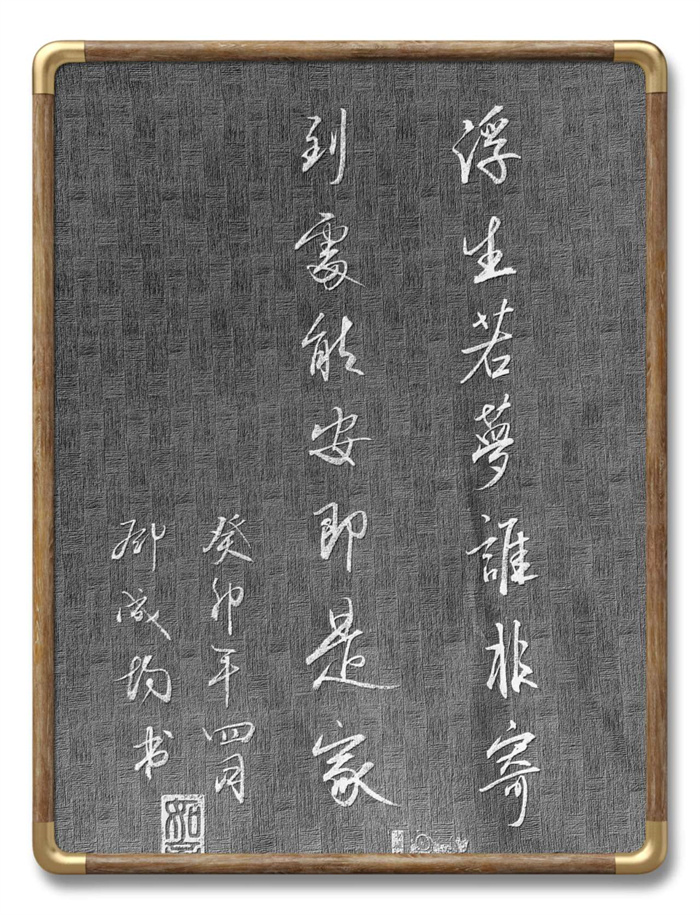 浮生若夢誰非寄
到處能安即是家
癸卯年四月
鄧成均书